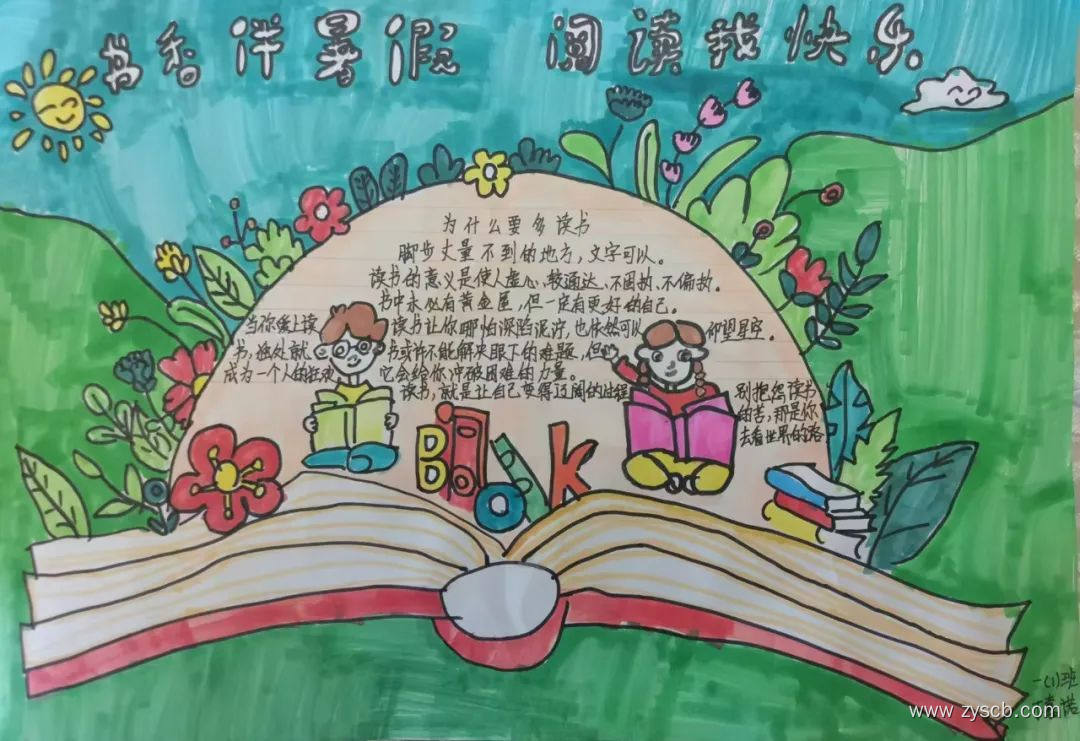 书香伴暑假 阅读我快乐
为什么要多读书
脚步丈量不到的地方，文字可以。
读书的意义是使人虚心、较通达、不固执、不偏执。
书中未必有黄金屋，但一定有更好的自己。
读书让你哪怕深陷泥泞，也依然可以仰望星空。
书或许不能解决眼下的难题，但
它会给你冲破困难的力量。
读书，就是让自己变得辽阔的过程
当你爱上读
书，独处就
成为一个人的狂欢
别把你读书
的苦，那是你
去看世界的路
BOOK
一(1)班
诺
www.zyscb.com